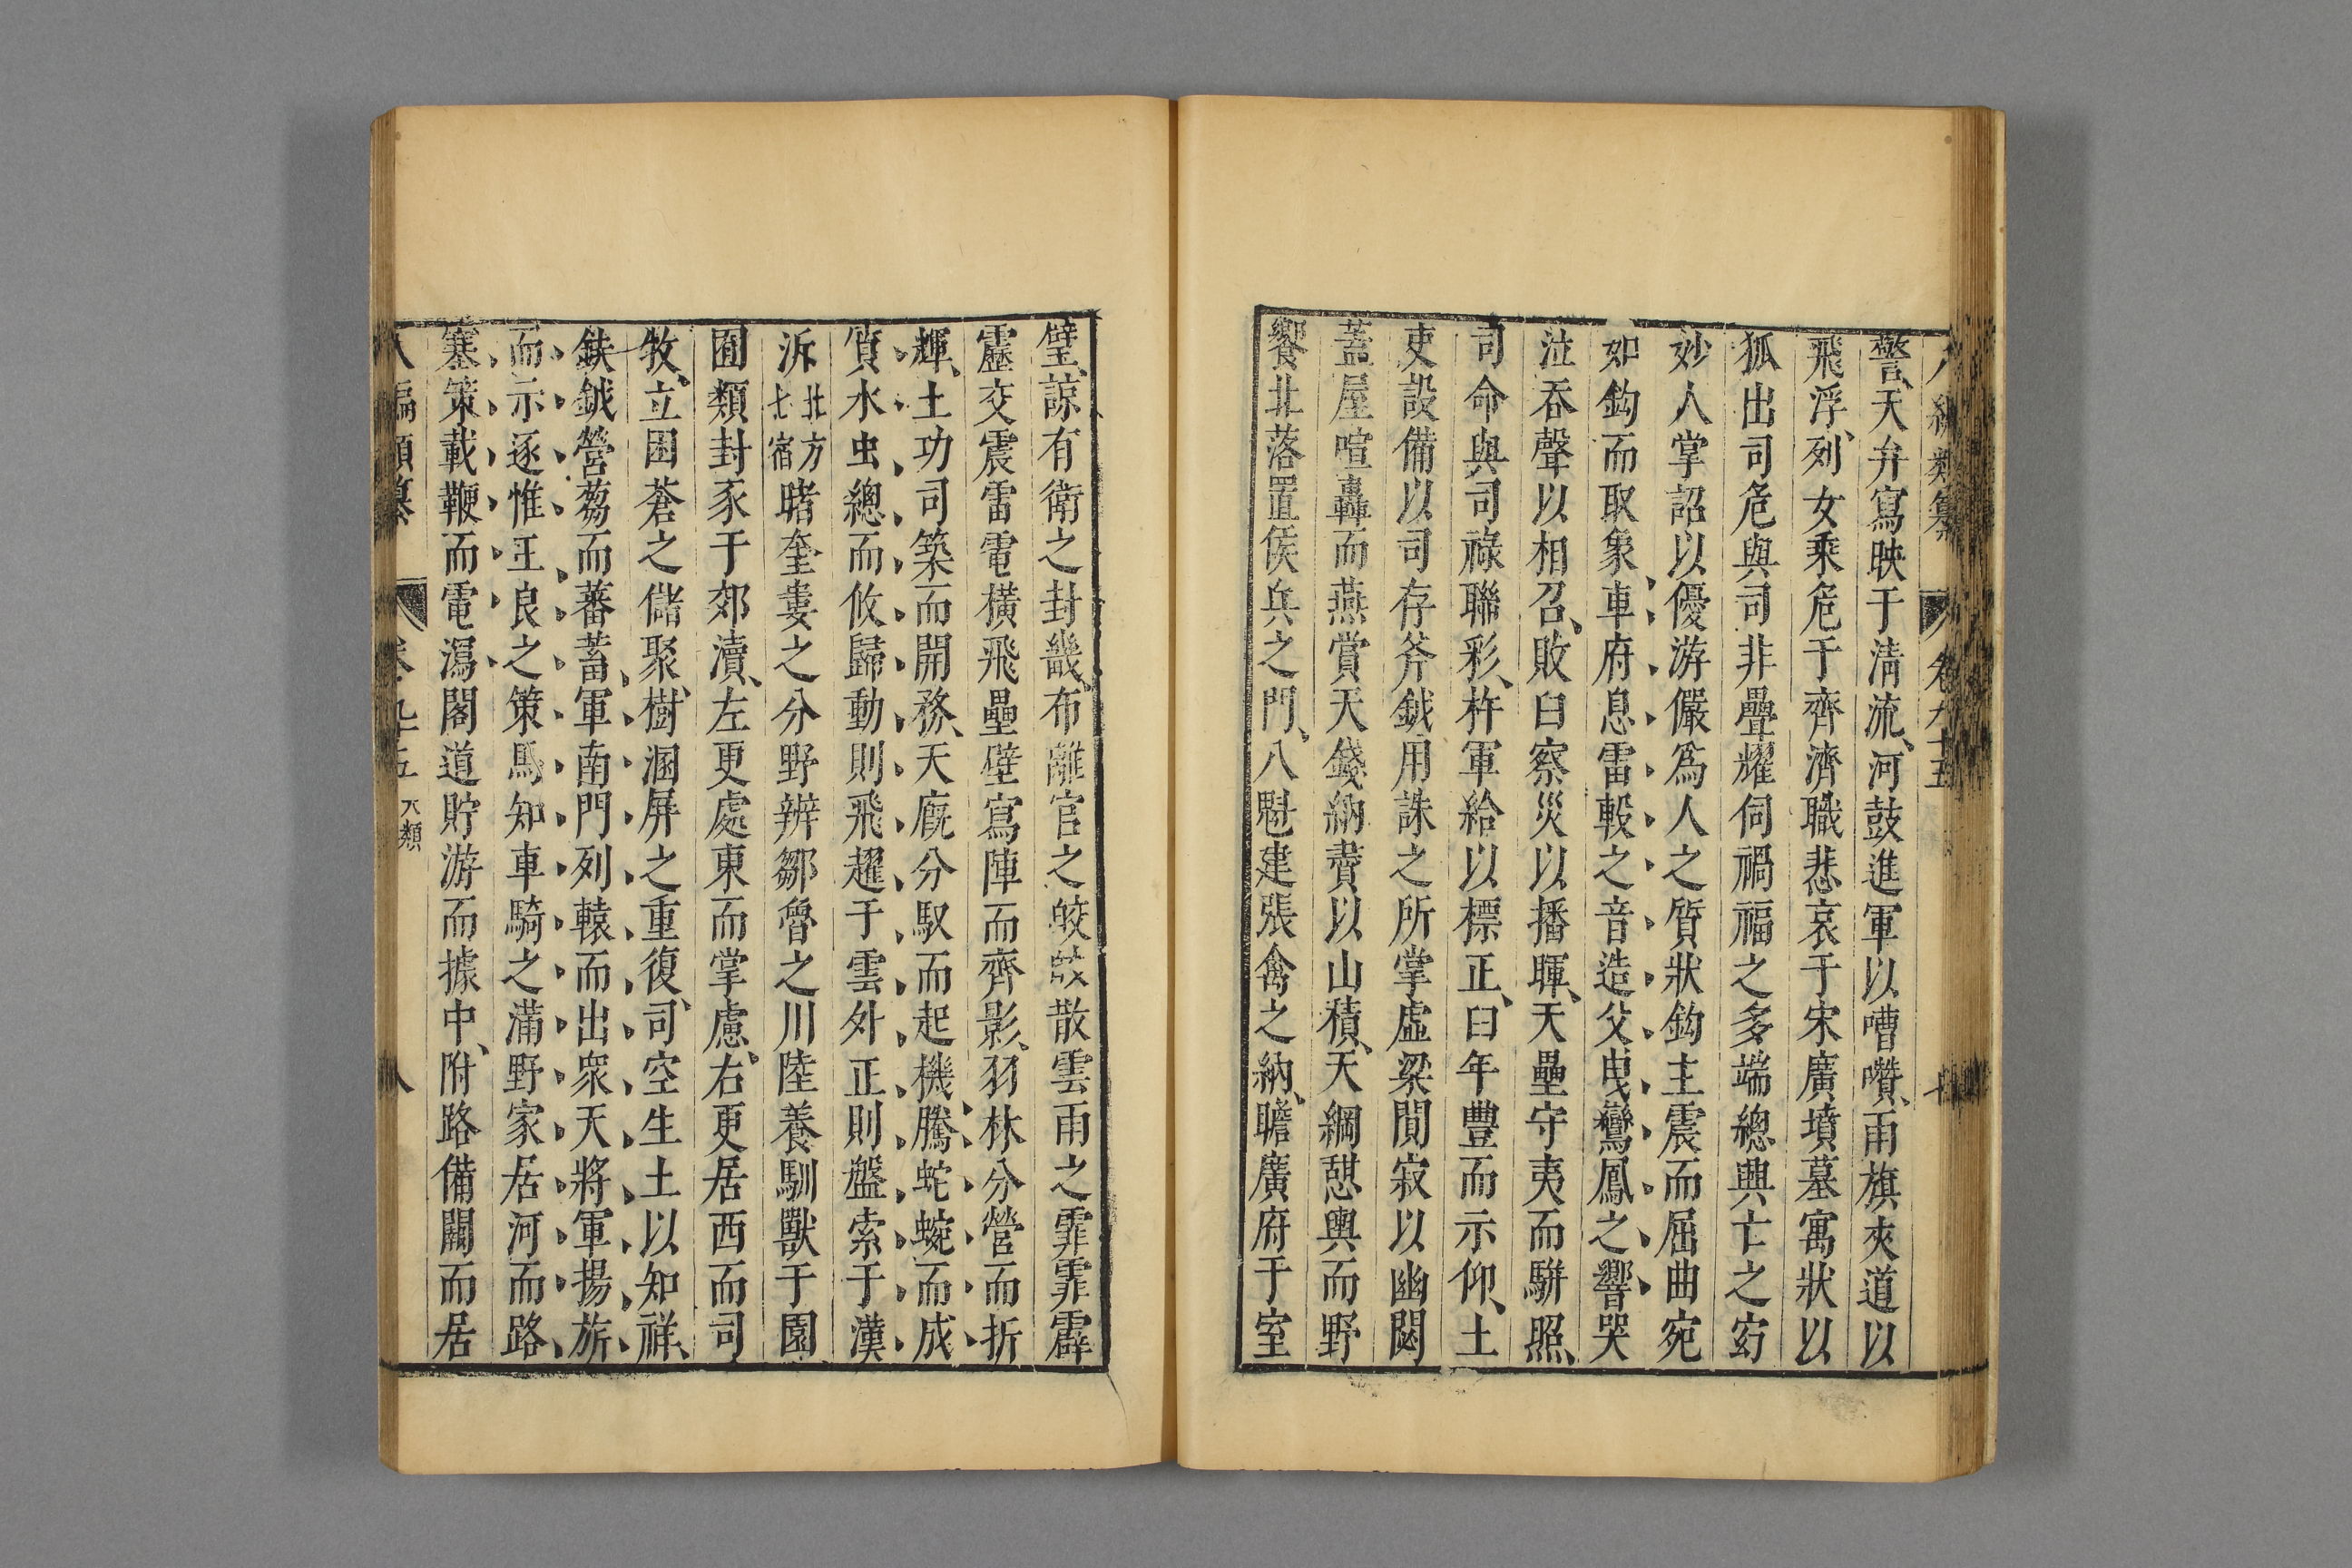 八編類纂 卷九十五
警天弁寫映于淸流河鼓進軍以嘈囋雨旗夾道以
飛浮列女乘危于齊濟職悲哀于宋廣墳墓寓狀以
狐出司危與司非疊耀伺禍福之多端總興亡之
妙人掌詔以優游儼爲人之質狀鈎主震而屈曲宛
如鈎而取象車府息雷轂之音造父曳鸞鳳之響哭
泣吞聲以相召敗臼察災以播暉天壘守夷而駢照
司命與司祿聯彩杵軍給以標正臼年豐而示仰土
吏設備以司存斧鉞用誅之所掌虛梁閴寂以幽閟
蓋屋喧轟而燕賞天錢納賮以山積天綱憇輿而野
饗北落置侯兵之門八魁建張禽之納瞻廣府于室
壁諒有衛之封畿布離宮之皎皎散雲雨之霏霏霹
靂交震雷電橫飛壘壁寫陣而齊影羽林分營而折
輝土功司築而開務天廐分馭而起機騰蛇蜿而成
質水虫總而攸歸動則飛躍于雲外正則盤索于漢
泝北方七宿睹奎婁之分野辨鄒魯之川陸養馴獸于園
囿類封豕于郊瀆左更處東而掌慮右更居西而司
牧立囷蒼之儲聚樹溷屏之重復司空生土以知祥
鈇鉞營蒭而蕃蓄軍南門列轅而出衆天將軍揚旂
而示逐惟王良之策馬知車騎之滿野家居河而路
塞策載鞭而電瀉閣道貯游而據中附路備闕而居
八編類纂 卷九十五 天類 八